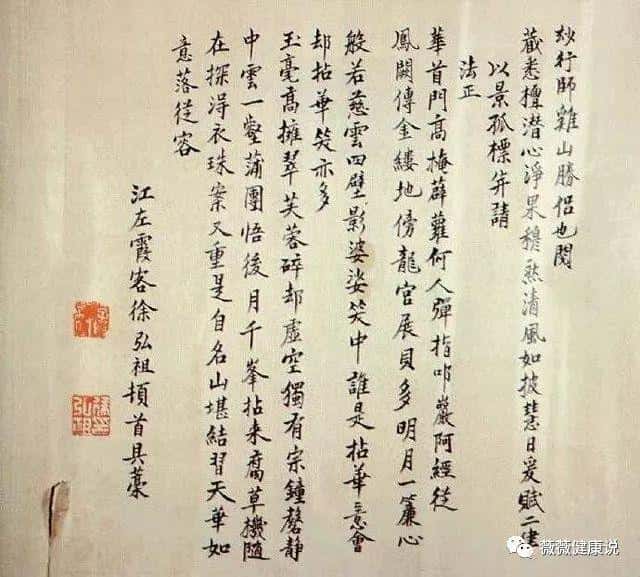 玅行師雞山勝侶也閱
藏悉檀潛心淨果穆然清風如披慧日爰賦二律
以景孤標并請
法正
華首門高掩薜蘿何人彈指叩巖阿經從
鳳闕傳金縷地傍龍宮展貝多明月一簾心
般若慈雲四壁影婆娑笑中誰是拈華意會
却拈華笑亦多
玉毫高擁翠芙蓉碎却虛空獨有宗鐘磬靜
中雲一壑蒲團悟後月千峯拈来腐草機隨
在探得衣珠案又重是自名山堪結習天華如
意落從容
江左霞客徐弘祖頓首具藁
薇薇健康说